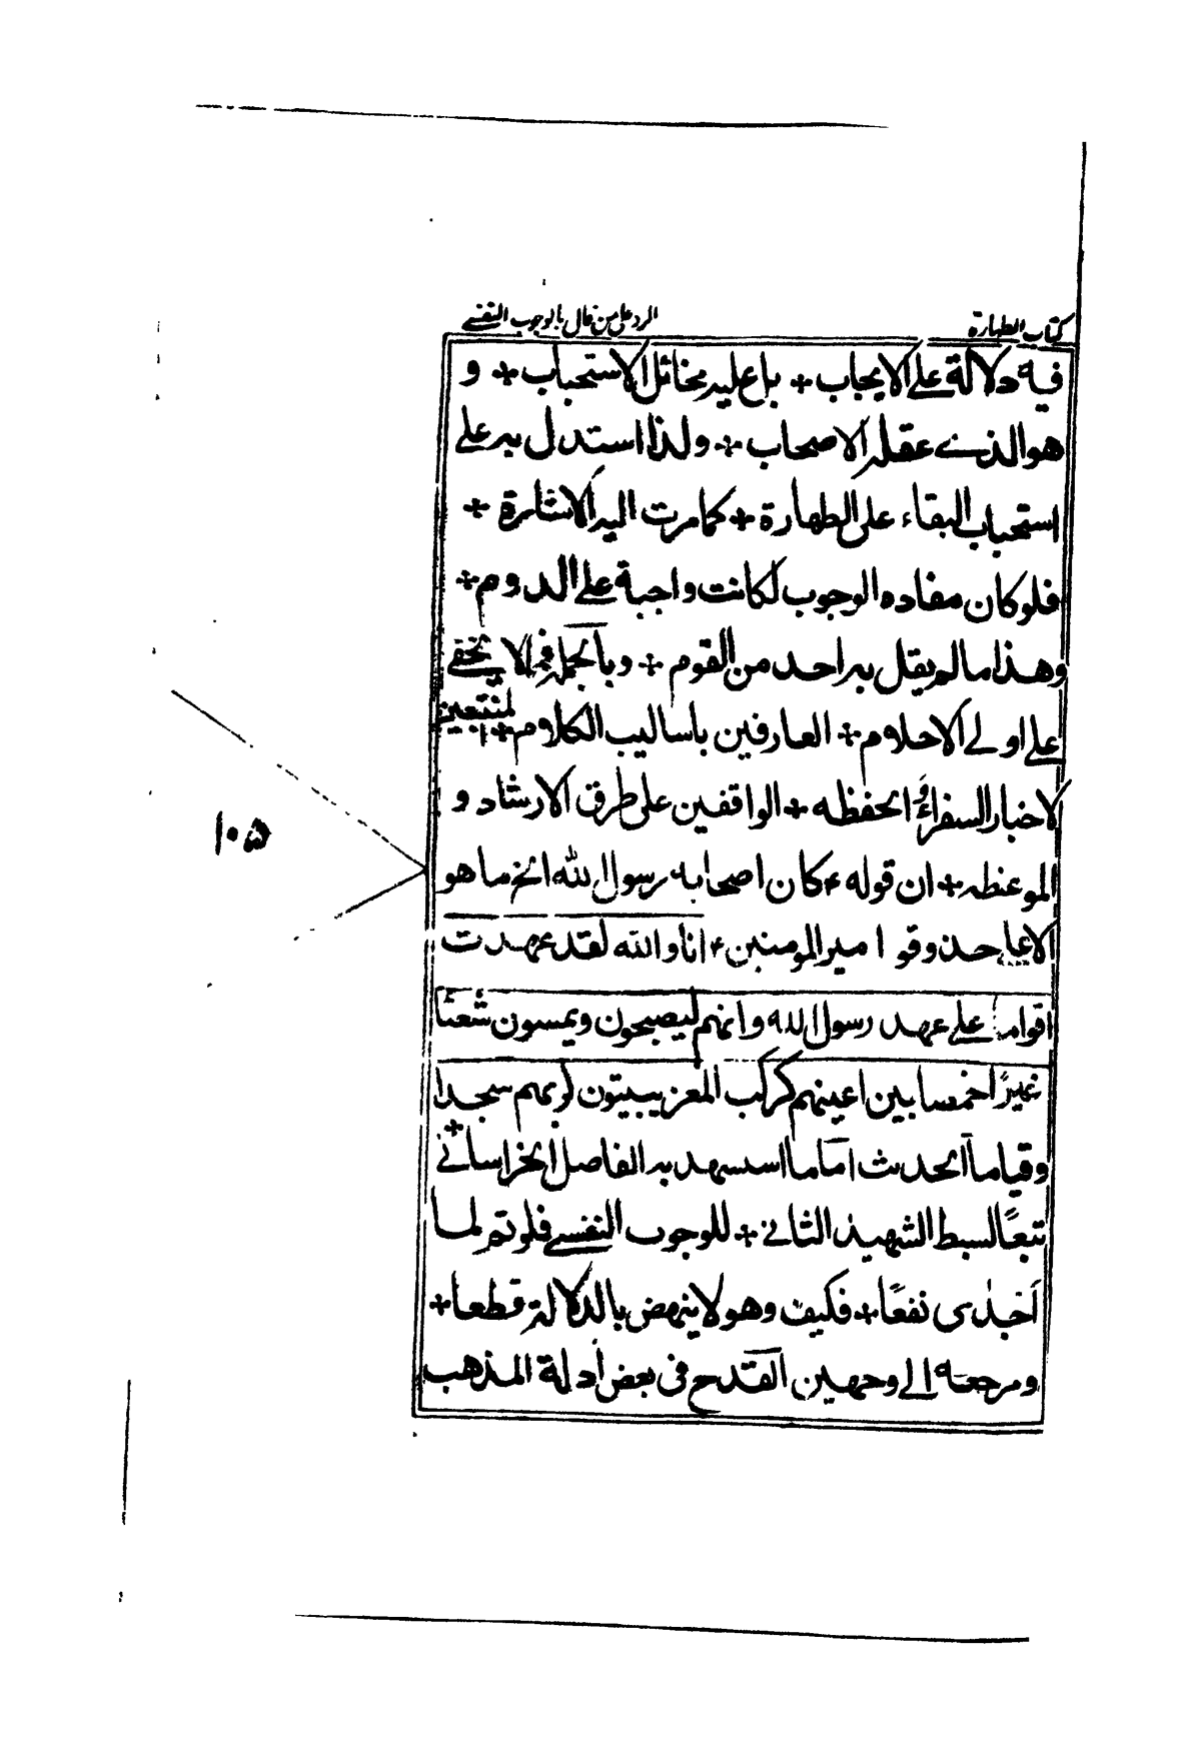 كتاب الطهارة
الرد على من قال بالوجوب النفسے
فيه دلالة على الايجاب + بل عليه مخائل الاستحباب + و
هو الذے عقله الاصحاب + ولذا استدل به على
استحباب البقاء على الطهارة + كما مرت اليه الاشارة +
فلو كان مفاده الوجوب لكانت واجبة على الدوم +
وهذا ما لم يقل به احد من القوم + وبالجملة فمما لا يخفى
على اولے الاحلام + العارفين باساليب الكلام + المنتبعين
لاخبار السفراء الحفظه + الواقفين على طرق الارشاد و
الموعظه + ان قوله ء كان اصحاب رسول الله الخ ما هو
الا على حذو قو امير المومنين ء انا والله لقد عهدت
اقواما على عهد رسول الله وانهم ليصبحون ويمسون شعثا
غبرًا خمصا بين اعينهم كركب المعزى يبيتون لربهم سجدا
وقياما الحديث + اما ما استسهد به الفاضل الخراسانے
تبعًا لسبط الشهيد الثانے + للوجوب النفسے فلو تم لما
اجدى نفعًا + فكيف وهو لا ينهض بالدلالة قطعا +
ومرجعه الى وجهين القدح فى بعض أدلة المذهب
١٠٥